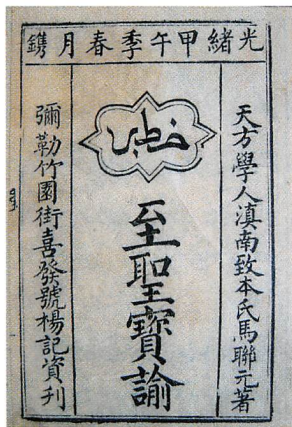 光緒甲午季春月鐫
天方學人滇南致本氏馬聯元著
至聖寶諭
彌勒竹園街喜發號楊記資刋